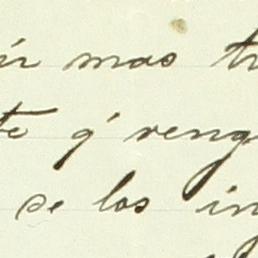 ir mas tr
te q' veng
se los in